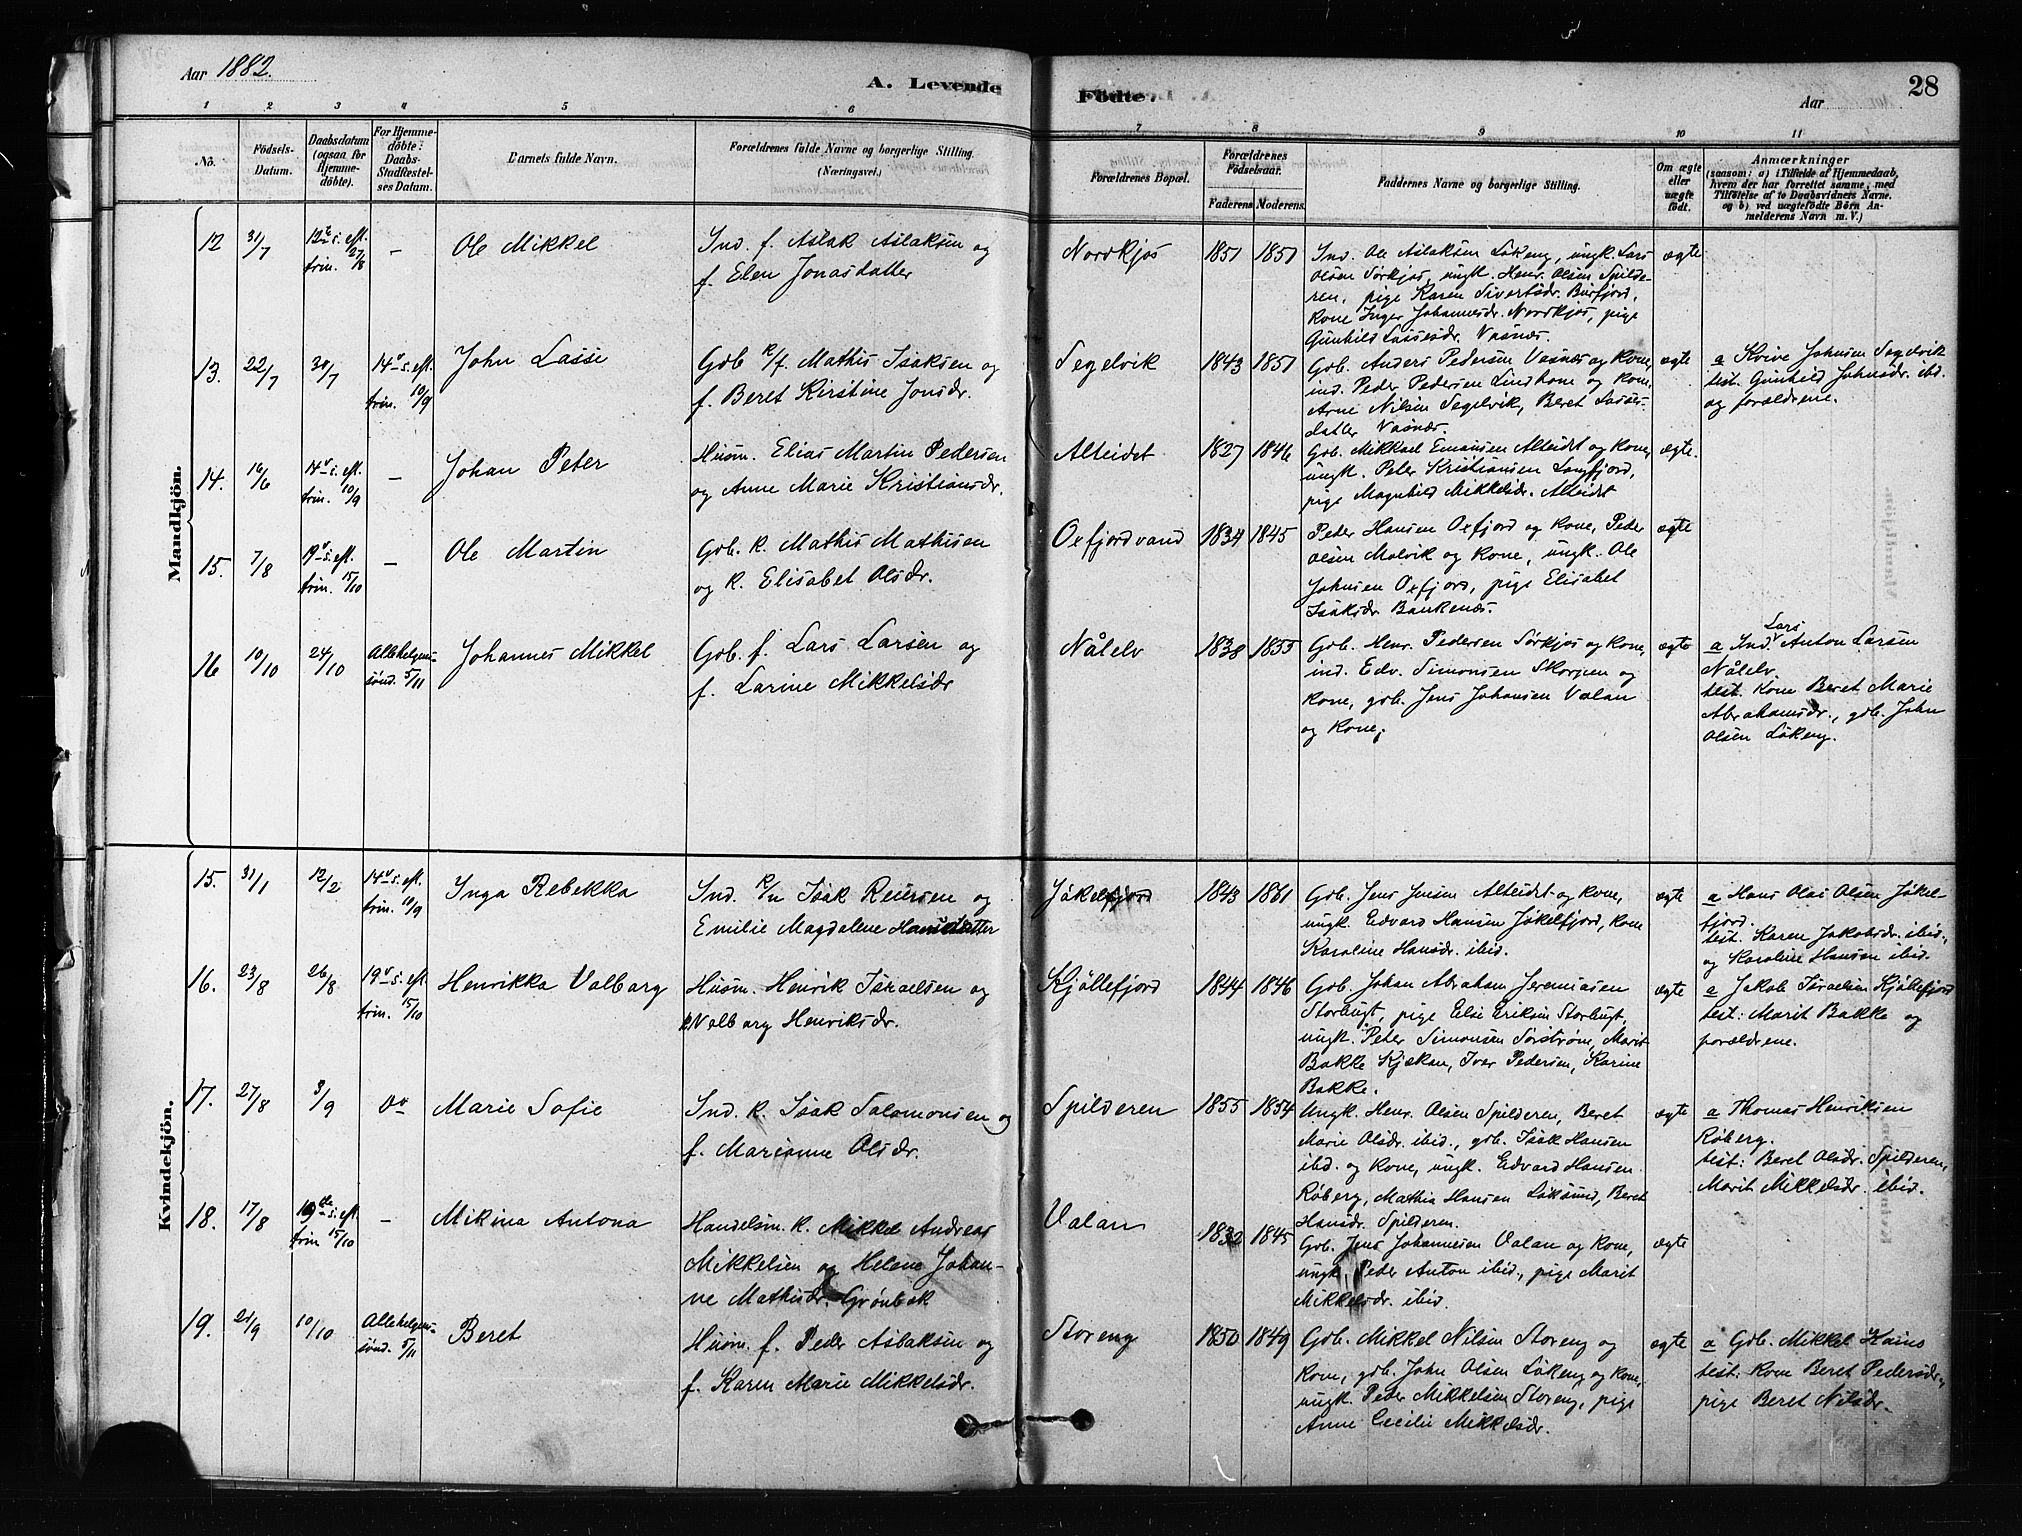 Aar 1882.
A. Levende
Födte.
Aar
28
1 2 3 4 5 6 7 8 9 10 11
No.
Födsels-
Datum.
Daabsdatum
(ogsaa for
Hjemme-
döbte).
For Hjemme-
döbte:
Daabs-
Stadfæstel-
ses Datum.
Barnets fulde Navn.
Forældrenes fulde Navne og borgerlige Stilling.
(Næringsvei.)
Forældrenes Bopæl.
Forældrenes
Födselsaar.
Faderens. Moderens.
Faddernes Navne og borgerlige Stilling.
Om ægte
eller
uægte
födt.
Anmærkninger
(saasom: a) i Tilfælde af Hjemmedaab,
hvem der har forrettet samme, med
Tilföielse af to Daabsvidners Navne.
og b) ved uægtefödte Börn An-
melderens Navn m. V.)
Mandkjön.
12 31/7
12te s. eft.
trin. 27/8
–
Ole Mikkel
Ind. f. Aslak Aslaksen og
f. Elen Jonasdatter
Nordkjos
1851 1851
Ind. Ole Aslaksen Løkeng, ungk. Lars
Olsen Sørkjos, ungk. Henr. Olsen Spilde-
ren, pige Karen Sivertsdr. Burfjord,
Kone Inger Johannesdr. Nordkjos, pige
Gunhild Lassesdr. Vasnæs.
ægte
13. 22/7 30/7
14de s. eft.
trin. 10/9
John Lasse
Gdb k/f. Mathis Isaksen og
f. Beret Kirstine Jonsdr.
Segelvik
1843 1851
Gdb. Anders Pedersen Vasnæs og kone,
ind. Peder Pedersen Lindhone og kone,
Arne Nilsen Segelvik, Beret Lasses-
datter Vasnæs.
ægte
a Johnsen Segelvik
test. Gunhild Johnsdr. ibd.
og forældrene.
14. 16/6
14de s. eft.
trin. 10/9
–
Johan Peter
Husm. Elias Martin Pedersen
og Anne Marie Kristiansdr.
Alteidet
1827 1846
Gdb. Mikkael Emansen Alteidet og kone,
ungk. Peter Kristiansen Langfjord,
pige Magnhild Mikkelsdr. Alteidet
ægte.
15. 7/8
19de s. eft.
trin. 15/10
–
Ole Martin
Gdb. k. Mathis Mathisen
og k. Elisabet Olsdr.
Oxfjordvand
1834 1845
Peder Hansen Oxfjord og kone, Peder
Olsen Molvik og kone, ungk. Ole
Johnsen Oxfjord, pige Elisabet
Isaksdr Bankenæs.
ægte
16 10/10 24/10
Allehelgens-
sønd. 5/11
Johannes Mikkel
Gdb. f. Lars Larsen og
f. Larine Mikkelsdr
Nålelv
1838 1855
Gdb. Henr. Pedersen Sørkjos og kone,
ind. Edv. Simonsen Skorpen og
kone, gdb. Jens Johansen Valan
og kone.
ægte
Lars
a Ind. Anton Larsen
Nålelv
test. Kone Beret Marie
Abrahamsdr., gdb. John
Olsen Løkeng.
Kvindekjön.
15. 31/1 12/2
14de s. eft.
trin. 10/9
Inga Rebekka
Ind. k/n Isak Reiersen og
Emilie Magdalene Hansdatter
Jøkelfjord
1843 1861
Gdb. Jens Jensen Alteidet og kone,
ungk. Edvard Hansen Jøkelfjord, kone
Karoline Hansdr. ibid.
ægte
a Hans Olai Olsen Jøkel-
fjord.
test. Karen Jakobsdr. ibid.,
og Karoline Hansen ibid.
16. 23/8 26/8
19de s. eft
trin. 15/10
Henrikka Valborg
Husm. Henrik Israelsen og
k Valborg Henriksdr.
Kjøllefjord
1844 1846
Gdb. Johan Abraham Jeremiasen
Storbugt, pige Else Eriksen Storbugt,
ungk. Peter Simonsen Sørstrøm, Marit
Bakke Kjækan, Iver Pedersen, Karine
Bakke.
ægte
a Jakob Israelsen Kjøllefjord
test: Marit Bakke og
forældrene.
17. 27/8 3/9
do
Marie Sofie
Ind. k. Isak Salomonsen og
f. Marianne Olsdr.
Spilderen
1855 1854
Ungk. Henr. Olsen Spilderen, Beret
Marie Olsdr. ibid., gdb. Isak Hansen
ibid. og kone, ungk. Edvard Hansen
Røberg, Mathis Hansen Løksund, Beret
Hansdr. Spilderen.
ægte
a Thomas Henriksen
Røberg.
test: Beret Olsdr. Spilderen,
Marit Mikkelsdr. ibid.
18. 17/8
19de s. eft.
trin 15/10
–
Mikina Antona
Handelsm. k. Mikkel Andreas
Mikkelsen og Helene Johan-
ne Mathisdr. Grønbæk
Valan
1832 1845
Gdb. Jens Johannesen Valan og kone,
ungk. Peder Anton ibid., pige Marit
Mikkelsdr. ibid.
ægte
19. 21/9 10/10
Allehelgens-
sønd. 5/11
Beret
Husm. f. Peder Aslaksen og
f. Karen Marie Mikkelsdr.
Storeng
1850 1849
Gdb. Mikkel Nilsen Storeng og
kone, gdb. John Olsen Løkeng og kone,
ungk. Peder Mikkelsen Storeng, pige
Anne Cecilie Mikkelsdr.
ægte
a Gdb. Mikkel
test: kone Beret Pedersdr.,
pige Beret Nilsdr.